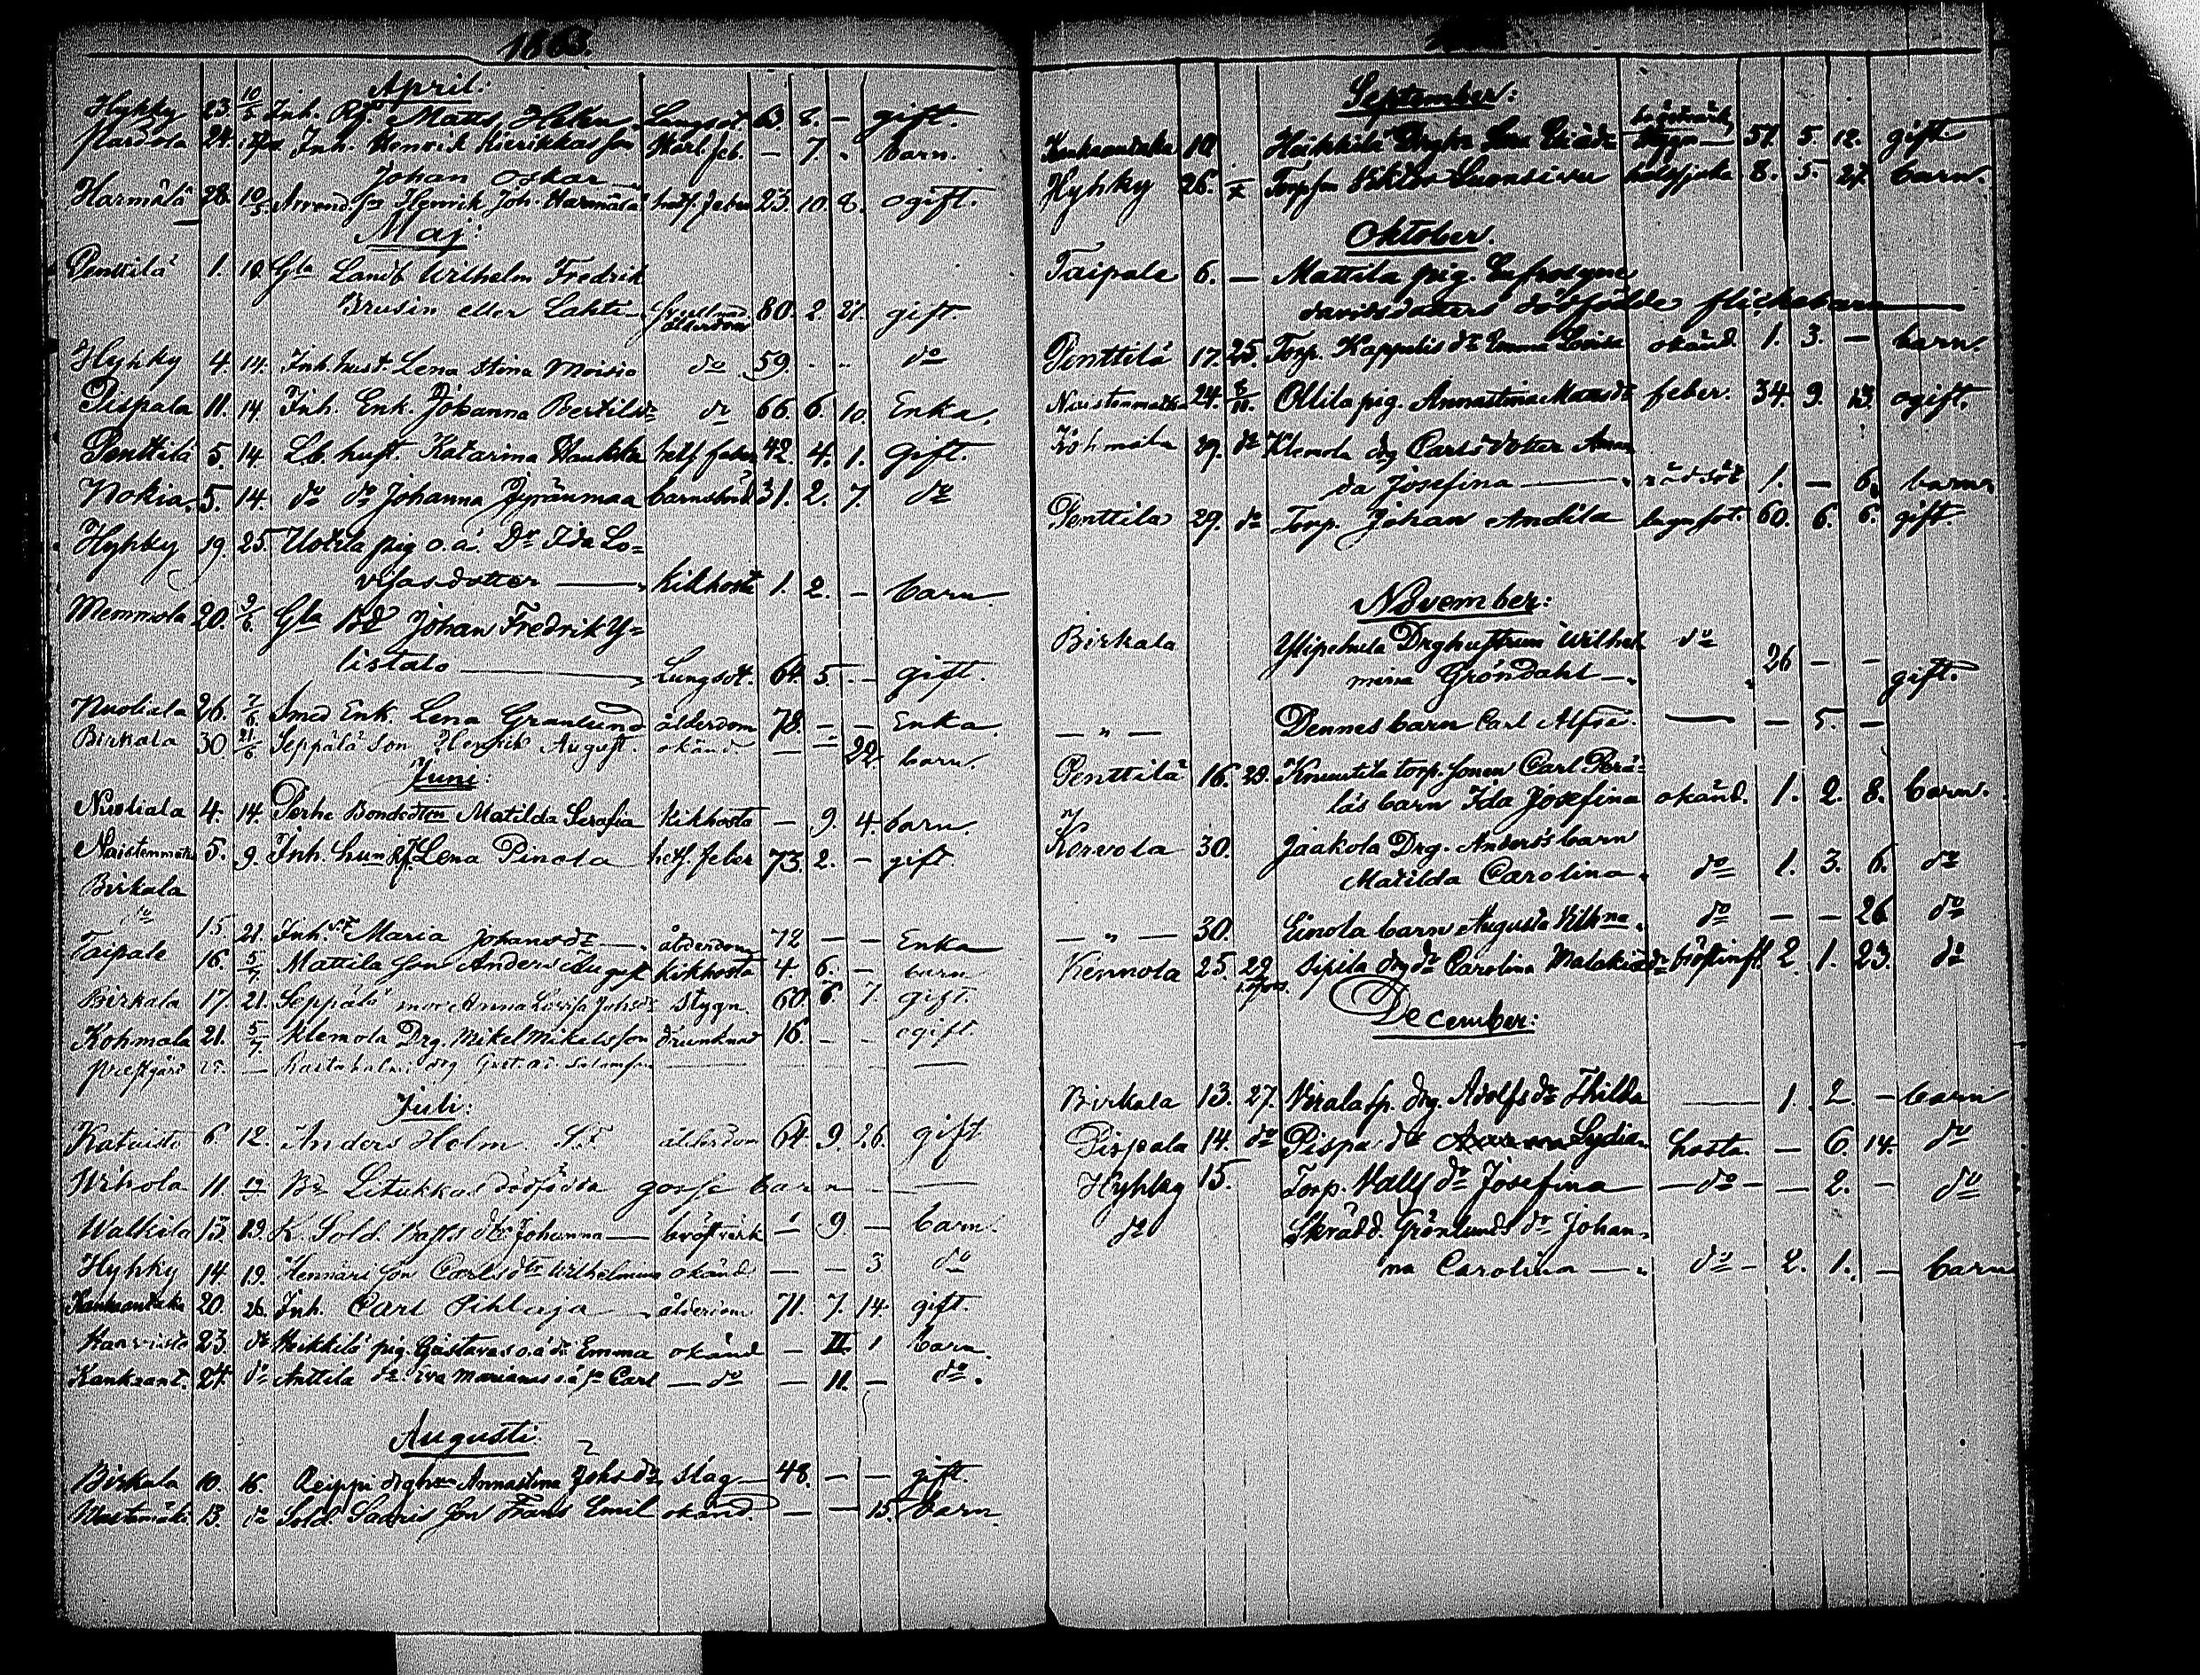 1863.
April:
Hyhky 23. 10/5 Inh. Matts Helen Lungsot. 63. 8. — gift.
24. Inh. Henrik Kierikkasson feb. — 7. „ barn.
Johan Oskar
Harmälä 28. 10/5 Henrik Joh. Harmälä hetf. feber 23. 10. 8. ogift.
Maj:
Penttilä 1. 10. Gla Landb Wilhelm Fredrik
Brusin eller Lahti ålderdom 80. 2. 21. gift.
Hyhky 4 14. Inh. hust. Lena Stina Moisio do 59. „ „ do
Pispala 11. 14 Inh. Enk. Johanna Bertilsdr do 66 6. 10. Enka.
Penttilä 5. 14. Lb. hust. Katarina hetf feber 42. 4. 1. Gift.
Nokia. 5. 14. do do Johanna barnsbörd 31. 2. 7. do
Hyhky 19. 25. Uotila pig o.ä. Dr Ida Lo=
visasdotter — Kikhosta 1. 2. — barn.
Memmola 20. 9/6. Gla Bd Johan Fredrik Y=
listalo — Lungsot. 64. 5. — gift.
Nuoliala 26. 7/6. Smed Enk. Lena Granlund ålderdom 78. — — Enka.
Birkala 30. 21/6 Seppälä Son Henrik August. okänd — — 22 barn.
Juni:
Nuoliala 4. 14. Perhe Bondedttn Matilda Serafia Kikhosta — 9. 4. barn.
Naistenmatka 5. 9. Inh. Lena Pinola hetf. feber 73. 2. — gift
Birkala
do 15 21. Inh. Maria Johansdr —. ålderdom 72 — — Enka
Taipale 16. 5/7 Mattila son Anders August Kikhosta 4. 6. — barn
Birkala 17 21. Seppälä mor Anna Lovisa Johsdr Stygn. 60. 6 7. gift.
Kohmala 21. 5/7. Klemola Drg. Mikel Mikelsson drunknad 16. — — ogift.
Prestgård 25. — drg Gustaf — — — — —
Juli:
Katuisto 6. 12. Anders Helm. ålderdom 64. 9. 26. gift
Wihola 11. 12 Litukkas dödfödda gosse barn — —
Walkila 13. 19. K. Sold. dtr Johanna — bröstvärk — 9. — barn.
Hyhky 14. 19. Hennäri son Carls dtr Wilhelmina okänd — — 3 do
Kankaantaka 20. 26. Inh. Carl Pihlaja — ålderdom 71. 7. 14. gift.
23. do Heikkilä pig. Gustavas o.ä dr Emma okänd — II. 1 barn.
Kankaant. 24 do Anttila Eva Marianas o.ä so Carl — do — — 11. — do.
Augusti:
Birkala 10. 16. Reippi Annastina Johsdr slag — 48. — — gift.
13. do Sold. son Frans Emil okänd. — — 15. barn.
September:
Kankaantaka 10. Heikkilä Lena Stygn — 51. 5. 12. gift
Hyhky 26. Torp son Viktor halssjuka 8. 5. 27 barn.
Oktober.
Taipale 6. — Mattila pig. Eufrosyne
davidsdotters dödfödda flickebarn —
Penttilä 17. 25. Torp. Kappelis dr Emma Lovisa okänd. 1. 3. — barn.
Naistenmatka 24. 8/11. Ollila pig. Annastina Matsdr feber. 34. 9. 13. ogift.
Kohmala 29. do Klemola drg Carls doter Aman
da Josefina — rödsot 1. — 6. barn.
Penttilä 29. do Torp. Johan Andila lungsot. 60. 6. 6. gift.
November:
Birkala Ylipehula Drghustrun Wilhel
mina Gröndahl — do 26 — — gift.
— „ — Dennes barn Carl Alfre. — — 5. —
Penttilä 16. 29. Knuutila torp. sonen Carl Perä=
läs barn Ida Josefina okänd. 1. 2. 8. barn.
Korvola 30. Jaakola Drg. Anders's barn
Matilda Carolina. do 1. 3. 6. do
— „ — 30. Einola barn Augusta Vilhna. do — — 26 do
Kennola 25. 29 Sipila drg dr Carolina Malakiadr bröstinfl. 2. 1. 23. do
December:
Birkala 13. 27. drg. Adolfs dr Thilda — 1. 2. — barn
Pispala 14. do Pispa dr Lydia. hosta. — 6. 14. do
Hyhky 15. Torp. dr Josefina — do — — 2. — do
do Skrädd. Grönlunds dr Johan-
na Carolina — do — 2. 1. — barn